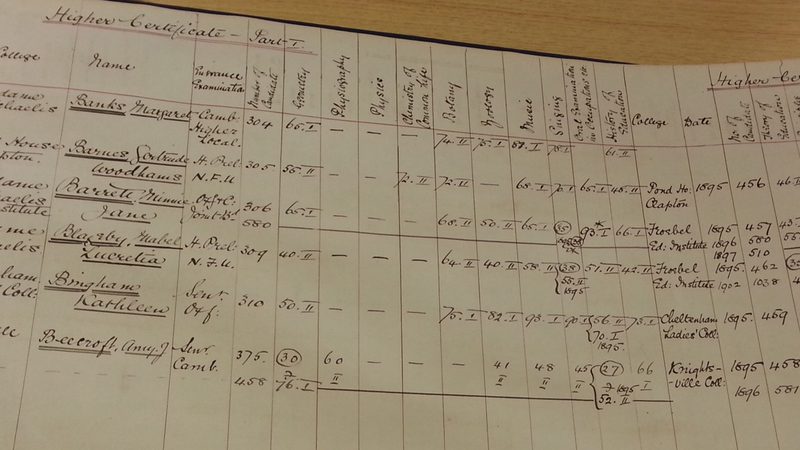 Higher Certificate – Part I.
Higher Cer
College
Name
Entrance Examination
Number of Candidate
Geometry
Physiography
Physics
Chemistry of Common Life
Botany
Zoology
Music
Singing
Oral Examination in Occupations etc.
History of Education
College
Date
No. of Candidate
Theory of Education
Banks, Margaret Camb: Higher Local. 304 65.I — — — 74.II 75.I 58.I 75.I 61.II
House Barnes, Gertrude Woodhams H. Prel: N.F.U 305 55.II — — 72.II 72.II — 68.I 70.I 65.I 45.II Pond Ho: Clapton 1895 456 46.I
Barrett, Minnie Jane 306 65.I — — — 68.II 50.II 65.I 35 93*.I 66.I Froebel Ed: Institute 1895 457
580 1896 580
1897 510
Blagsby, Mabel Lucretia H. Prel: N.F.U. 309 40.II — — — 64.II 40.II 58.II 38 51.II 42.II Froebel Ed: Institute 1895. 462
55.II 1895 1902 1038
Bingham Kathleen Senr. Oxf: 310 50.II — — — 75.I 82.I 93.I 90.I 56.II 73.I Cheltenham Ladies' Coll: 1895. 459
70.I 1895.
Beecroft, Amy J Senr. Camb. 375. 30 60 II — — — 41 II 48 II 45 II 27 66 I Knights-ville Coll: 1895 458
458 76.I 7 1895 52.II 1896 581